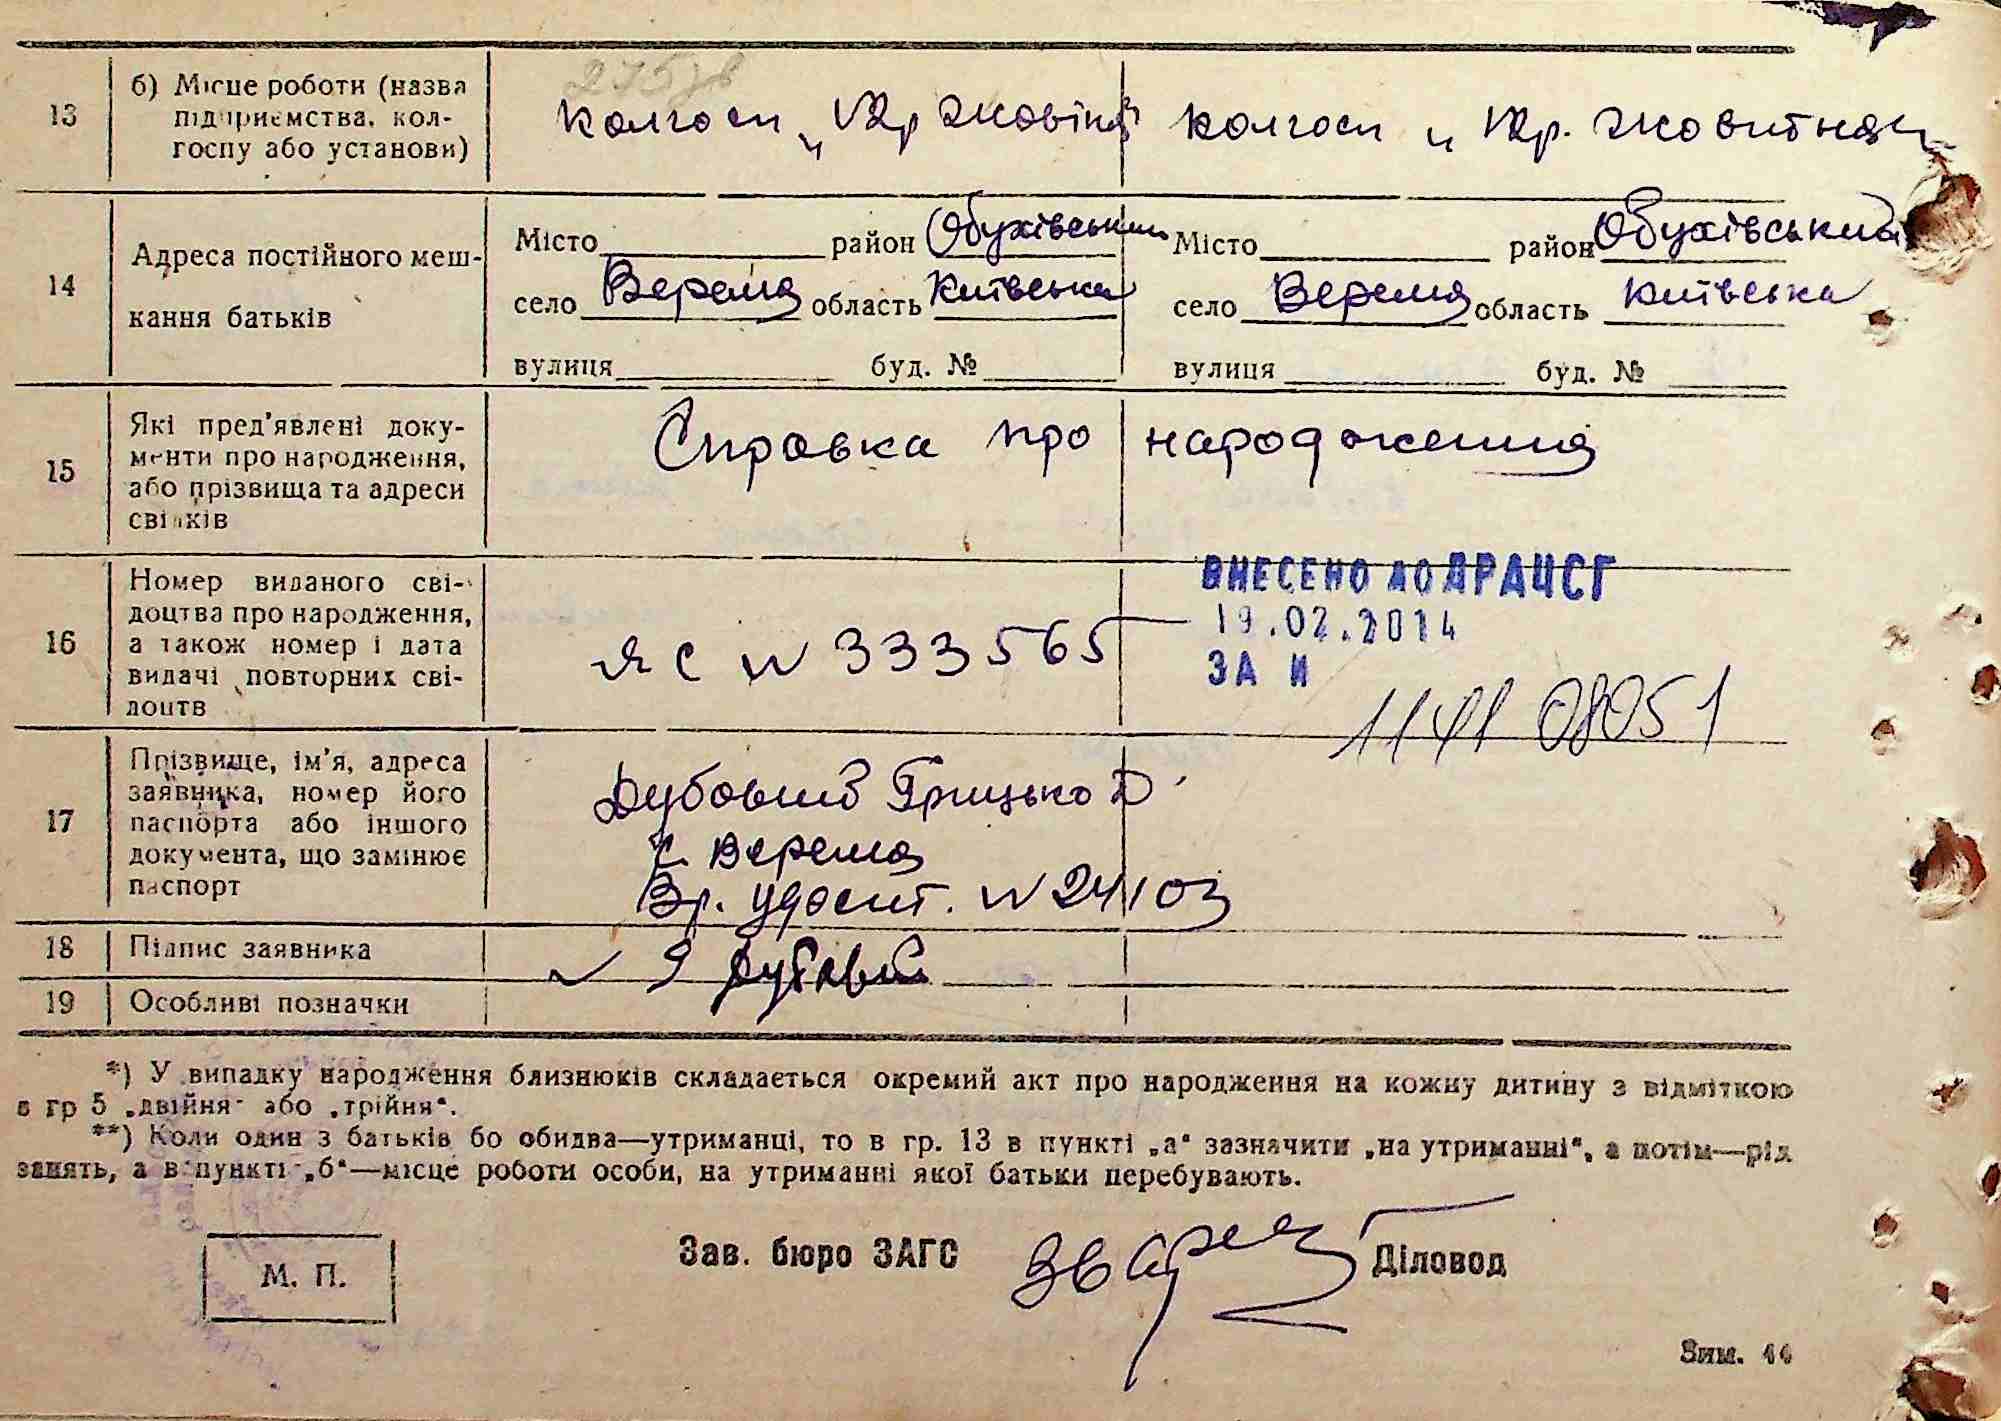 13
б) Місце роботи (назва
підприємства, кол-
госпу або установи)
275
колгосп „ 12р жовтня
колгосп „ 12р. жовтня
14
Адреса постійного меш-
кання батьків
Місто район Обухівський
село Веремя область Київська
вулиця буд. №
Місто район Обухівський
село Веремя область Київська
вулиця буд. №
15
Які пред'явлені доку-
менти про народження,
або прізвища та адреси
свідків
Справка про народження
16
Номер виданого сві-
доцтва про народження,
а також номер і дата
видачі повторних сві-
доцтв
ЯС N 333565
ВНЕСЕНО ДО ДРАЦСГ
19.02.2014
ЗА И
17
Прізвище, ім'я, адреса
заявника, номер його
паспорта або іншого
документа, що замінює
паспорт
Дубовий Грицько D
с. Веремя
Вр. удост. N 24103
18
Підпис заявника
Дубовий
19
Особливі позначки
*) У випадку народження близнюків складається окремий акт про народження на кожну дитину з відміткою
в гр 5 „двійня" або „трійня".
**) Коли один з батьків бо обидва—утриманці, то в гр. 13 в пункті „а" зазначити „на утриманні", а потім—рід
занять, а в пункті „б"—місце роботи особи, на утриманні якої батьки перебувають.
М. П.
Зав. бюро ЗАГС
Діловод
Зим. 44